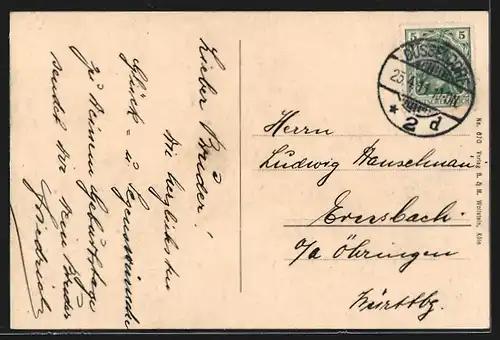 Lieber Bruder!
Die herzlichsten
Glück- u. Segenswünsche
zu Deinem Geburtstage
sendet Dir Dein Bruder
Friedrich
5 5
DÜSSELDORF
25.4.11
* 2 d
Herrn
Ludwig
Eversbach
O/A Öhringen
Württbg.
No. 670 Verlag R. & M. Wollstein, Köln